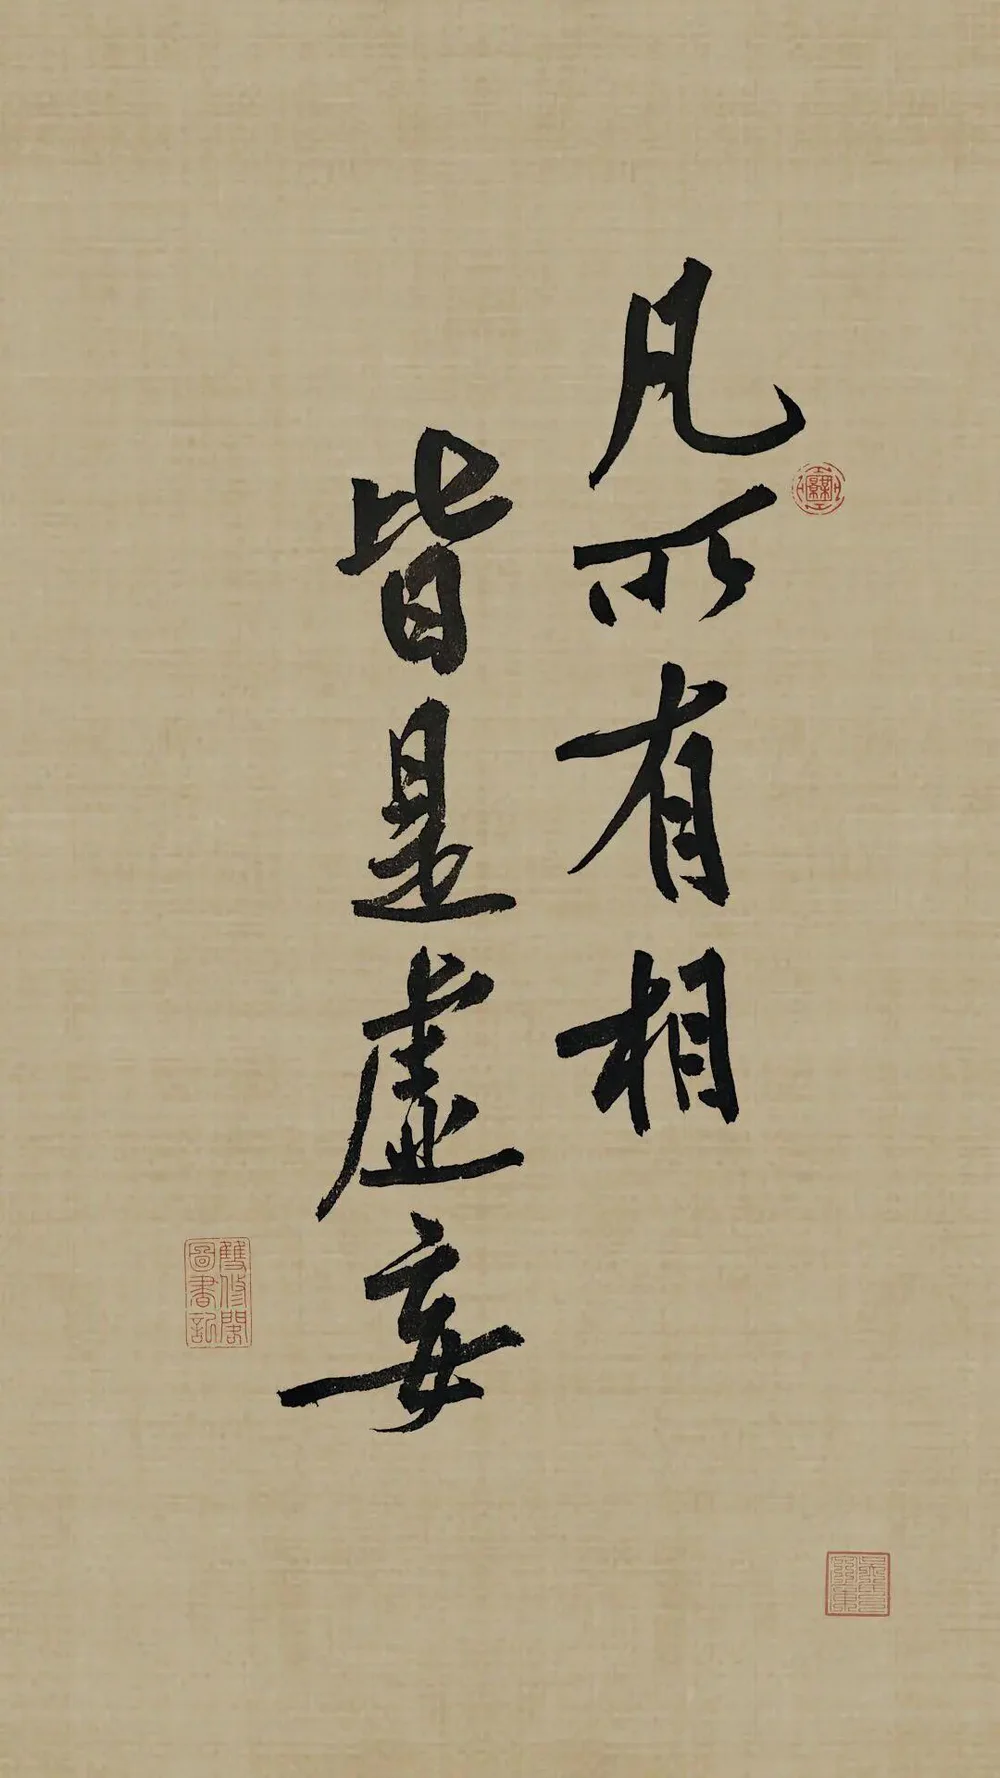 凡所有相
皆是虚妄
雙修閣
圖書記